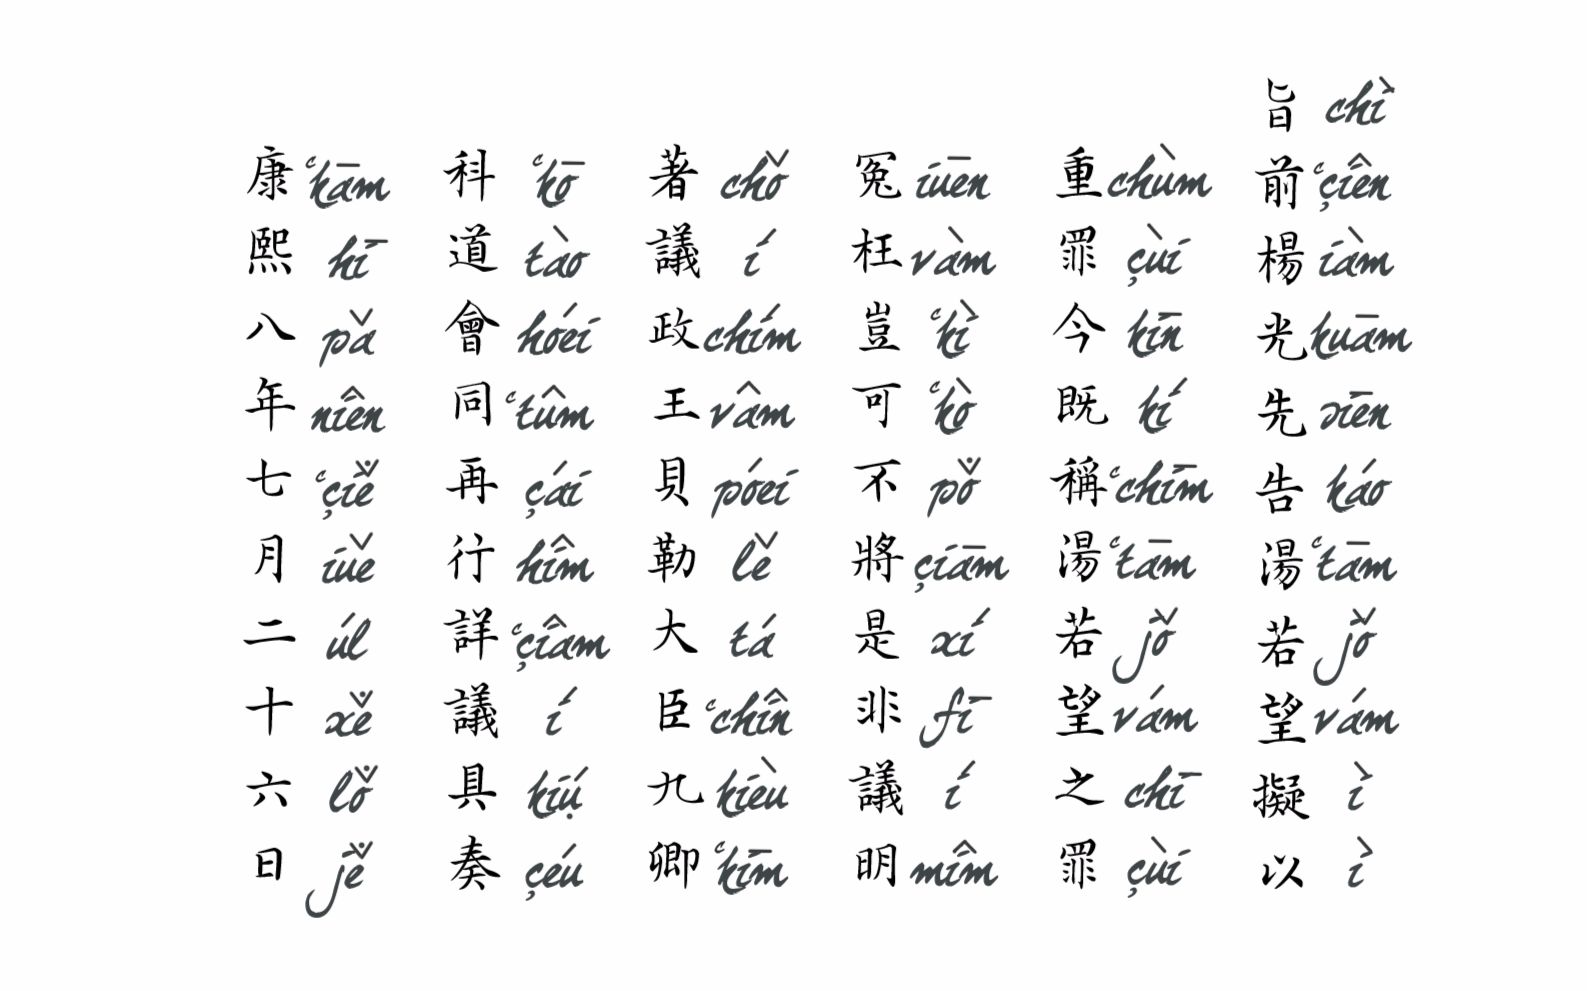 旨 chì 前 ʿçiên 楊 iàm 光 kuām 先 xiēn 告 káo 湯 ʿtām 若 jǒ̇ 望 vám 擬 ì 以 ì
重 chùm 罪 çùi 今 kīn 既 kí 稱 ʿchīm 湯 ʿtām 若 jǒ̇ 望 vám 之 chī 罪 çùi
冤 iuēn 枉 vàm 豈 ʿkì 可 ʿkò 不 pǒ̇ 將 çiām 是 xí 非 fī 議 í 明 mîm
著 chǒ 議 í 政 chím 王 vâm 貝 póei 勒 lě 大 tá 臣 ʿchîn 九 kièu 卿 ʿkīm
科 ʿkō 道 tào 會 hóei 同 ʿtûm 再 çái 行 hîm 詳 ʿçiâm 議 í 具 kiụ́ 奏 çéu
康 ʿkām 熙 hī 八 pǎ 年 niên 七 ʿçiě̇ 月 iuě 二 úl 十 xě̇ 六 lǒ̇ 日 jě̇